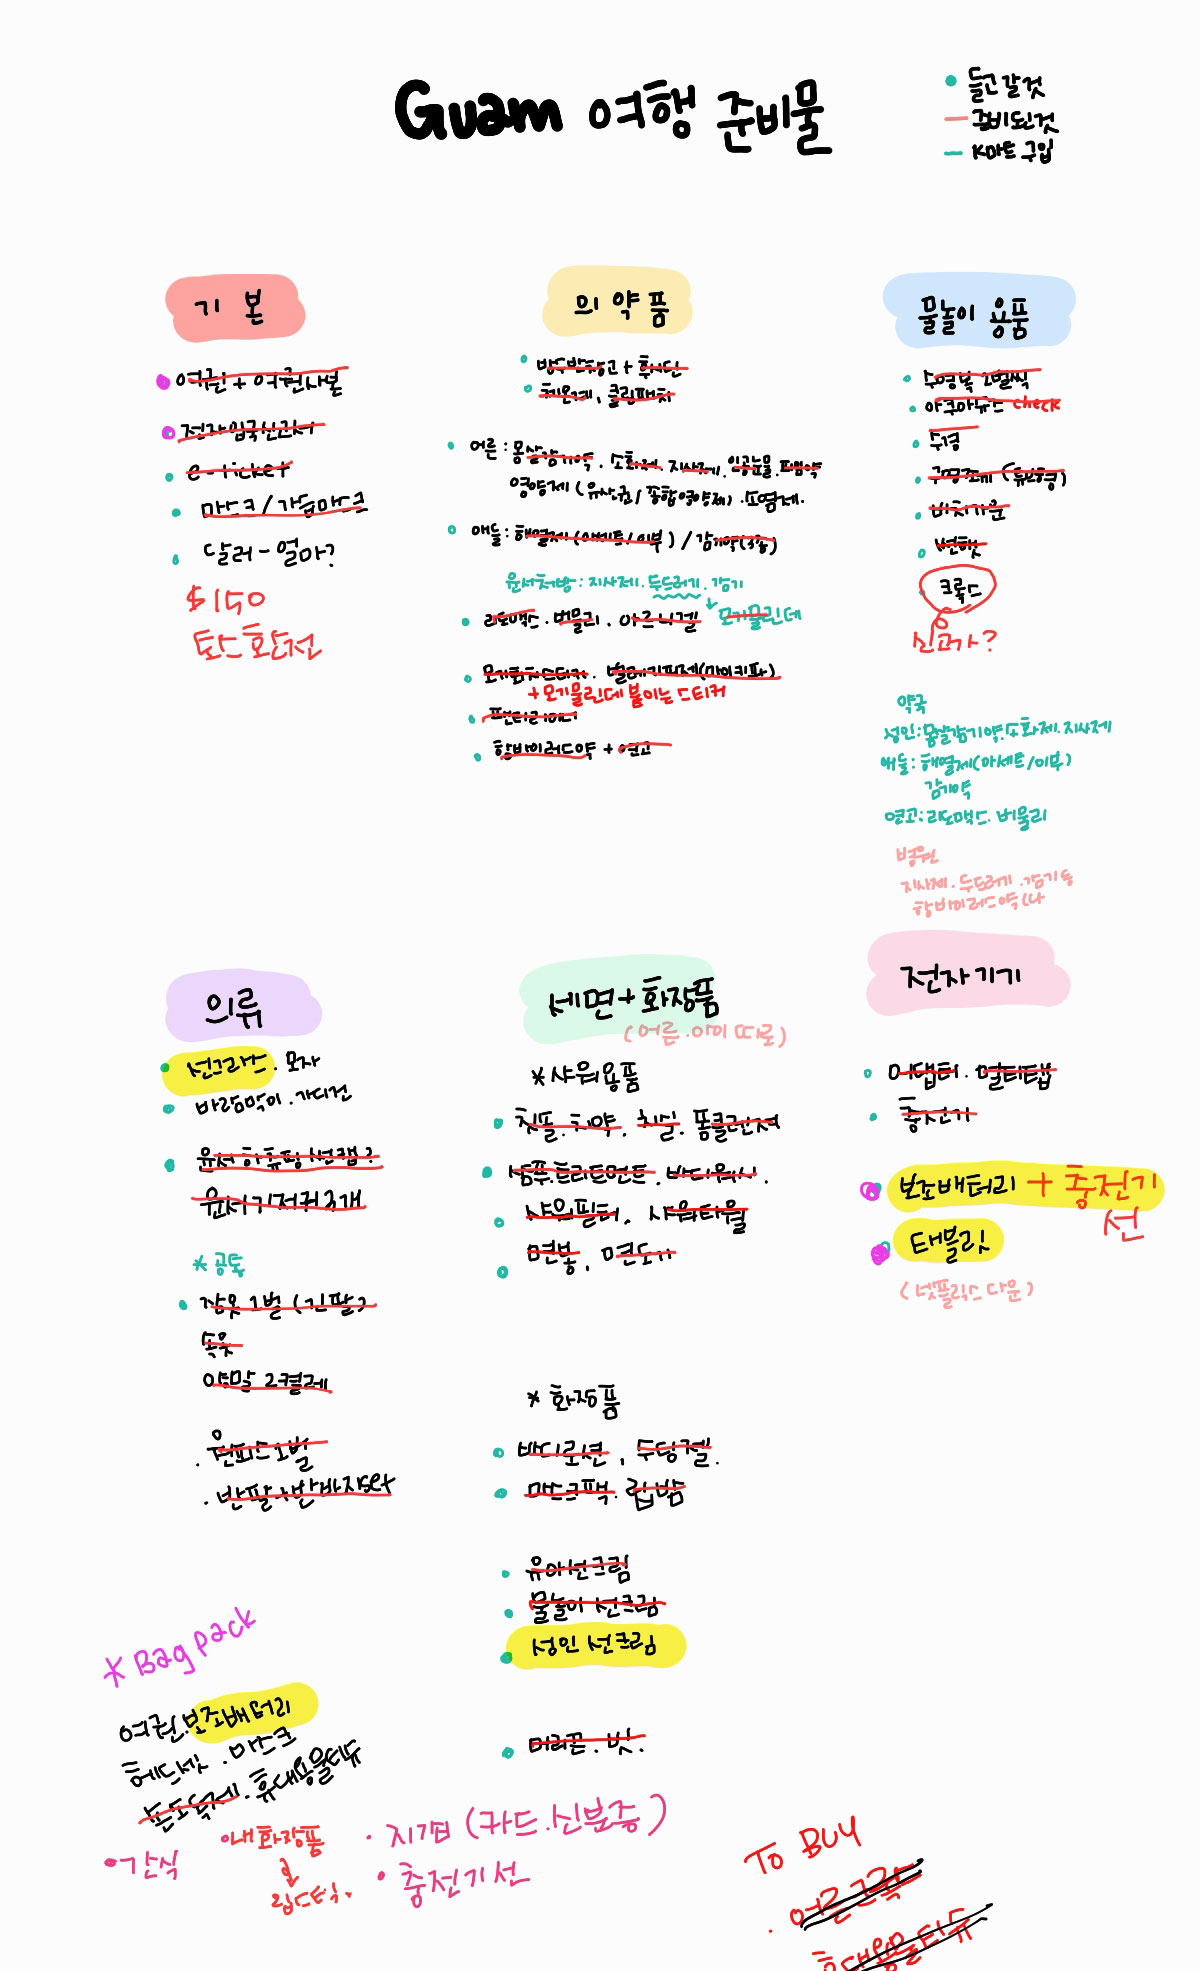 Guam 여행 준비물
들고갈것
준비된것
K마트 구입
기본
여권 + 여권사본
전자입국신고서
e-ticket
마스크 / 가습마스크
달러 - 얼마?
$150
토스환전
의약품
방수반창고 + 후시딘
체온계, 쿨링패치
어른 : 몽살감기약. 소화제. 지사제. 인공눈물. 피임약
영양제 (유산균/종합영양제). 소염제.
애들 : 해열제 (아세트/이부) / 감기약(3종)
윤서처방 : 지사제. 두드러기. 감기
리도맥스. 버물리. 아르니겔
모기물린데
모기퇴치스티커. 벌레기피제(마이키파)
+ 모기물린데 붙이는 스티커
팬티라이너
항바이러스약 + 연고
물놀이 용품
수영복 2벌씩
아쿠아슈즈 check
수경
구명조끼 (튜브형)
비치가운
썬햇
크록스
신고가?
약국
성인 : 몽살감기약. 소화제. 지사제
애들 : 해열제(아세트/이부)
감기약
연고 : 리도맥스. 버물리
병원
지사제. 두드러기. 감기 등
항바이러스약 (나
의류
선그라스. 모자
바람막이. 가디건
윤서 하휴핑 썬캡?
윤서 기저귀 3개
* 공통
잠옷 1벌 (긴팔)
속옷
양말 2켤레
. 원피스 1벌
. 반팔+반바지set
세면+화장품
(어른. 아이 따로)
* 샤워용품
칫솔. 치약. 치실. 폼클렌져
샴푸. 트리트먼트. 바디워시.
샤워필터. 샤워타월
면봉, 면도기
* 화장품
바디로션, 수딩젤.
마스크팩. 립밤
유아선크림
물놀이 선크림
성인 선크림
머리끈. 빗.
전자기기
어댑터. 멀티탭
충전기
보조배터리 + 충전기
선
태블릿
(넷플릭스 다운)
* Bag pack
여권. 보조배터리
헤드셋. 마스크
손소독제. 휴대용물티슈
• 간식
• 내화장품
립스틱.
• 지갑 (카드. 신분증)
• 충전기선
TO BUY
휴대용물티슈